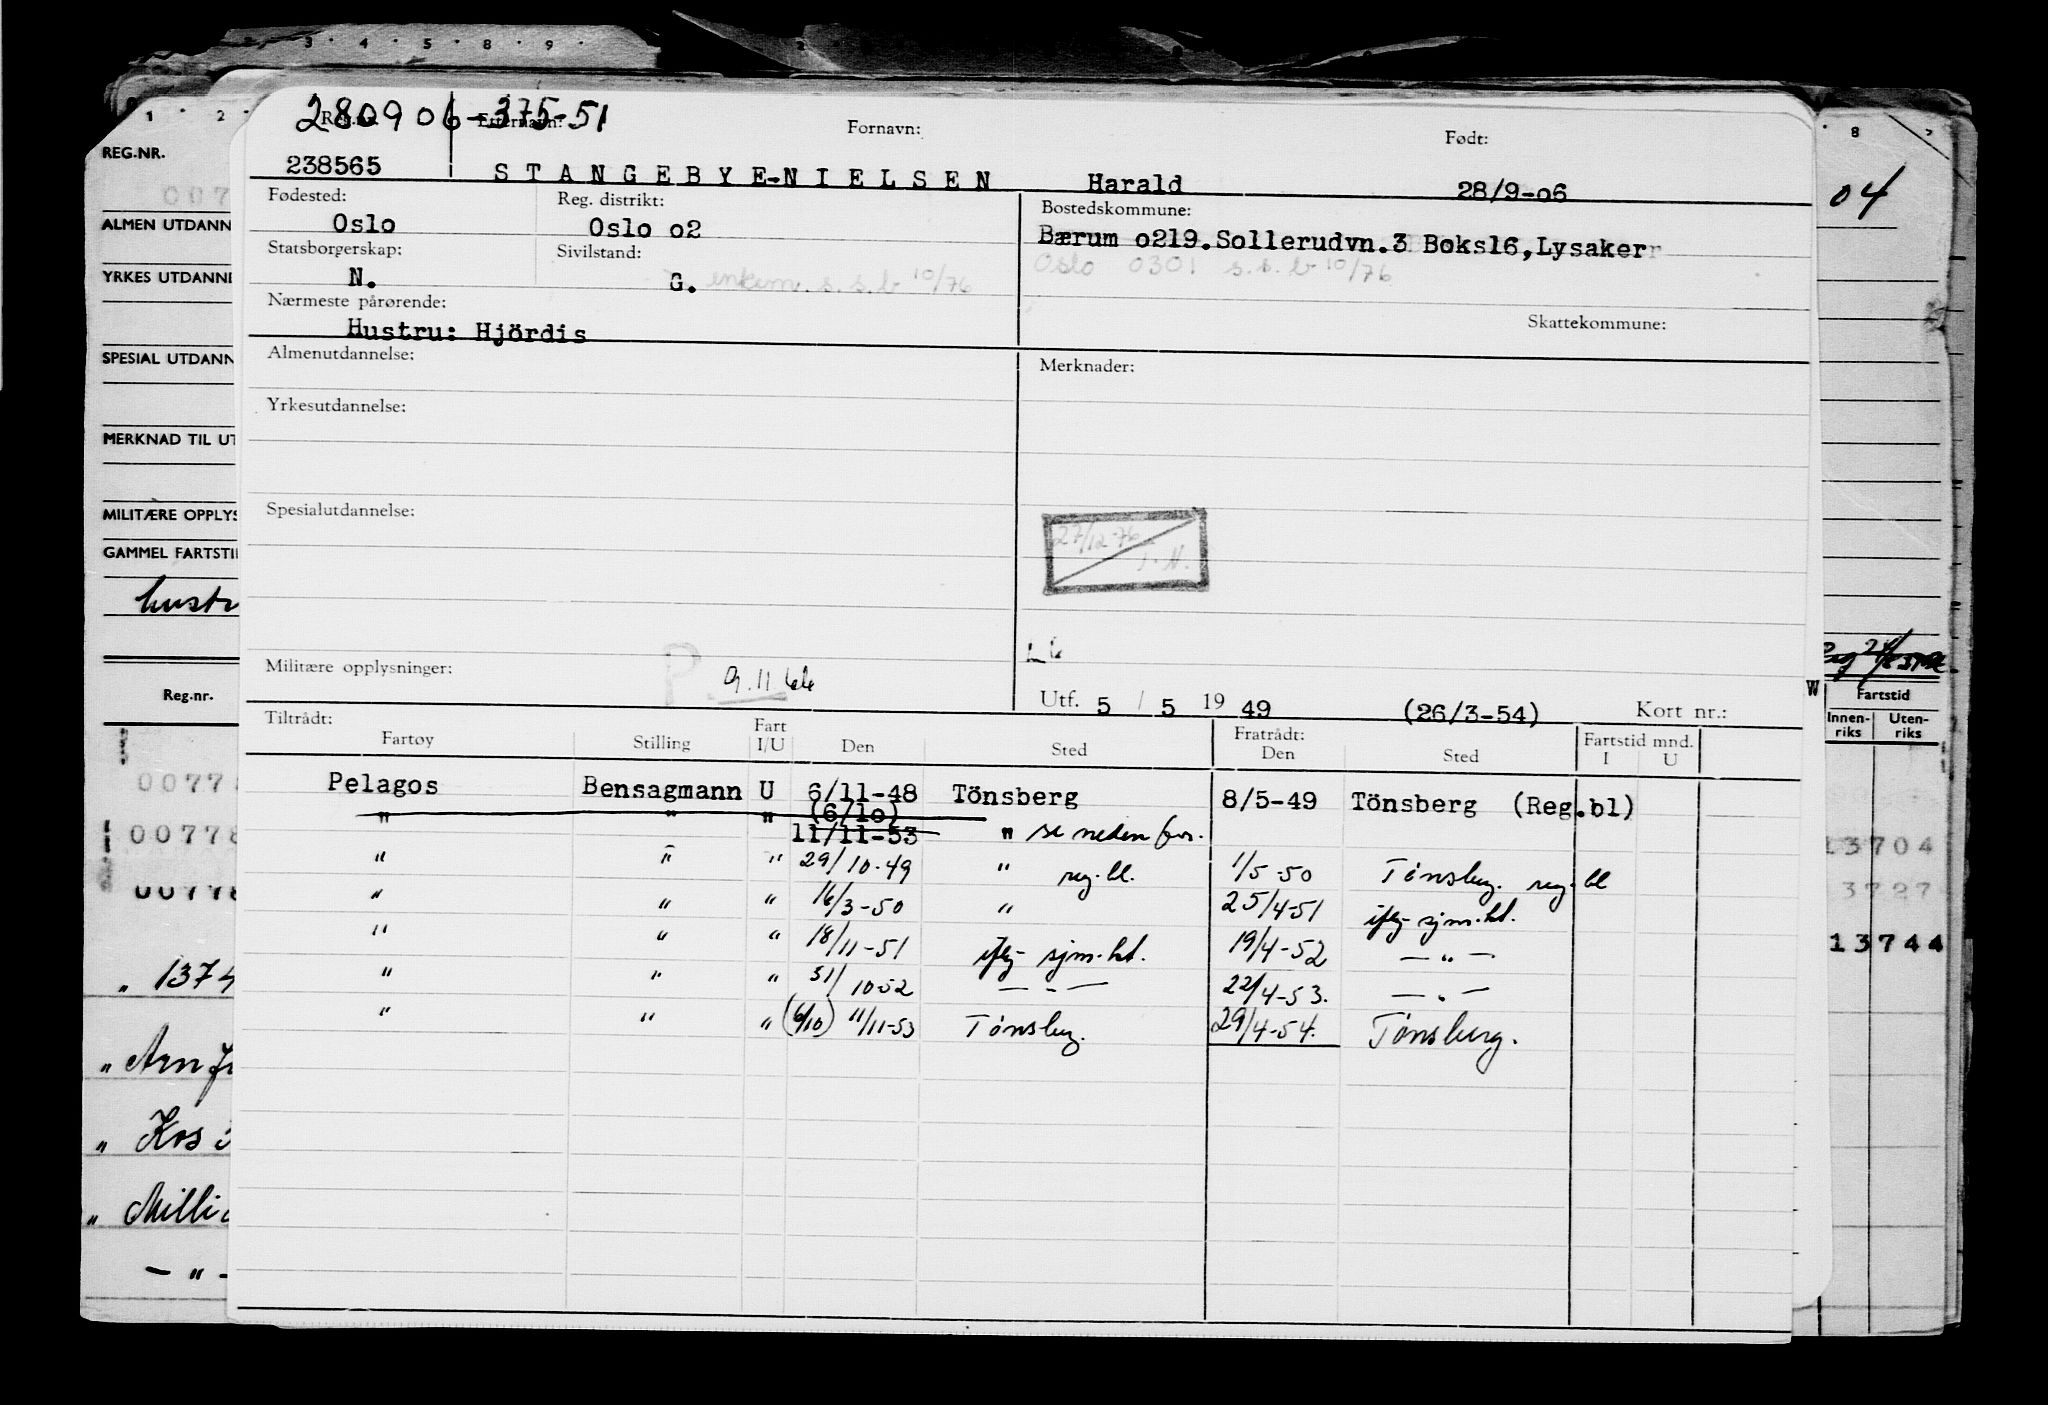 3 · 4 · 5 · 8 · 9 ·
1 · 2
· 8 7
REG.NR.
007
04
ALMEN UTDANN
YRKES UTDANNE
SPESIAL UTDANN
MERKNAD TIL UT
MILITÆRE OPPLYS
GAMMEL FARTSTI
hustr
Reg.nr.
0077
00778
00778
" 1374
" Arn
" Kos
" Milli
— " -
280906-375-51
Reg.nr. Etternavn: Fornavn: Født:
238565 STANGEBYE-NIELSEN Harald 28/9-o6
Fødested: Reg. distrikt: Bostedskommune:
Oslo Oslo o2 Bærum o219.Sollerudvn.3 Boks16,Lysaker
Statsborgerskap: Sivilstand: Oslo 0301 s.s.b 10/76
N. G. enkem. s.s.b 10/76
Nærmeste pårørende: Skattekommune:
Hustru: Hjördis
Almenutdannelse: Merknader:
Yrkesutdannelse:
Spesialutdannelse:
27/12-76
Militære opplysninger: P. 9.11 66
Utf. 5 / 5 19 49 (26/3-54) Kort nr.:
W
Tiltrådt: Fart Fratrådt: Fartstid mnd.
Fartøy Stilling I/U Den Sted Den Sted I U
Pelagos Bensagmann U 6/11-48 Tönsberg 8/5-49 Tönsberg (Reg.bl)
" " " (6/1o) 11/11-53 " se neden for.
" " " 29/10-49 " reg.bl. 1/5-50 Tønsberg. reg.bl
" " " 16/3-50 " 25/4-51 iflg sjm.ht.
" " " 18/11-51 iflg sjm.ht. 19/4-52 — " —
" " " 31/10-52 — " — 22/4-53. — " —
" " " (6/10) 11/11-53 Tønsberg. 29/4-54. Tønsberg.
Fartstid
Innen-riks Uten-riks
13704
3727
13744